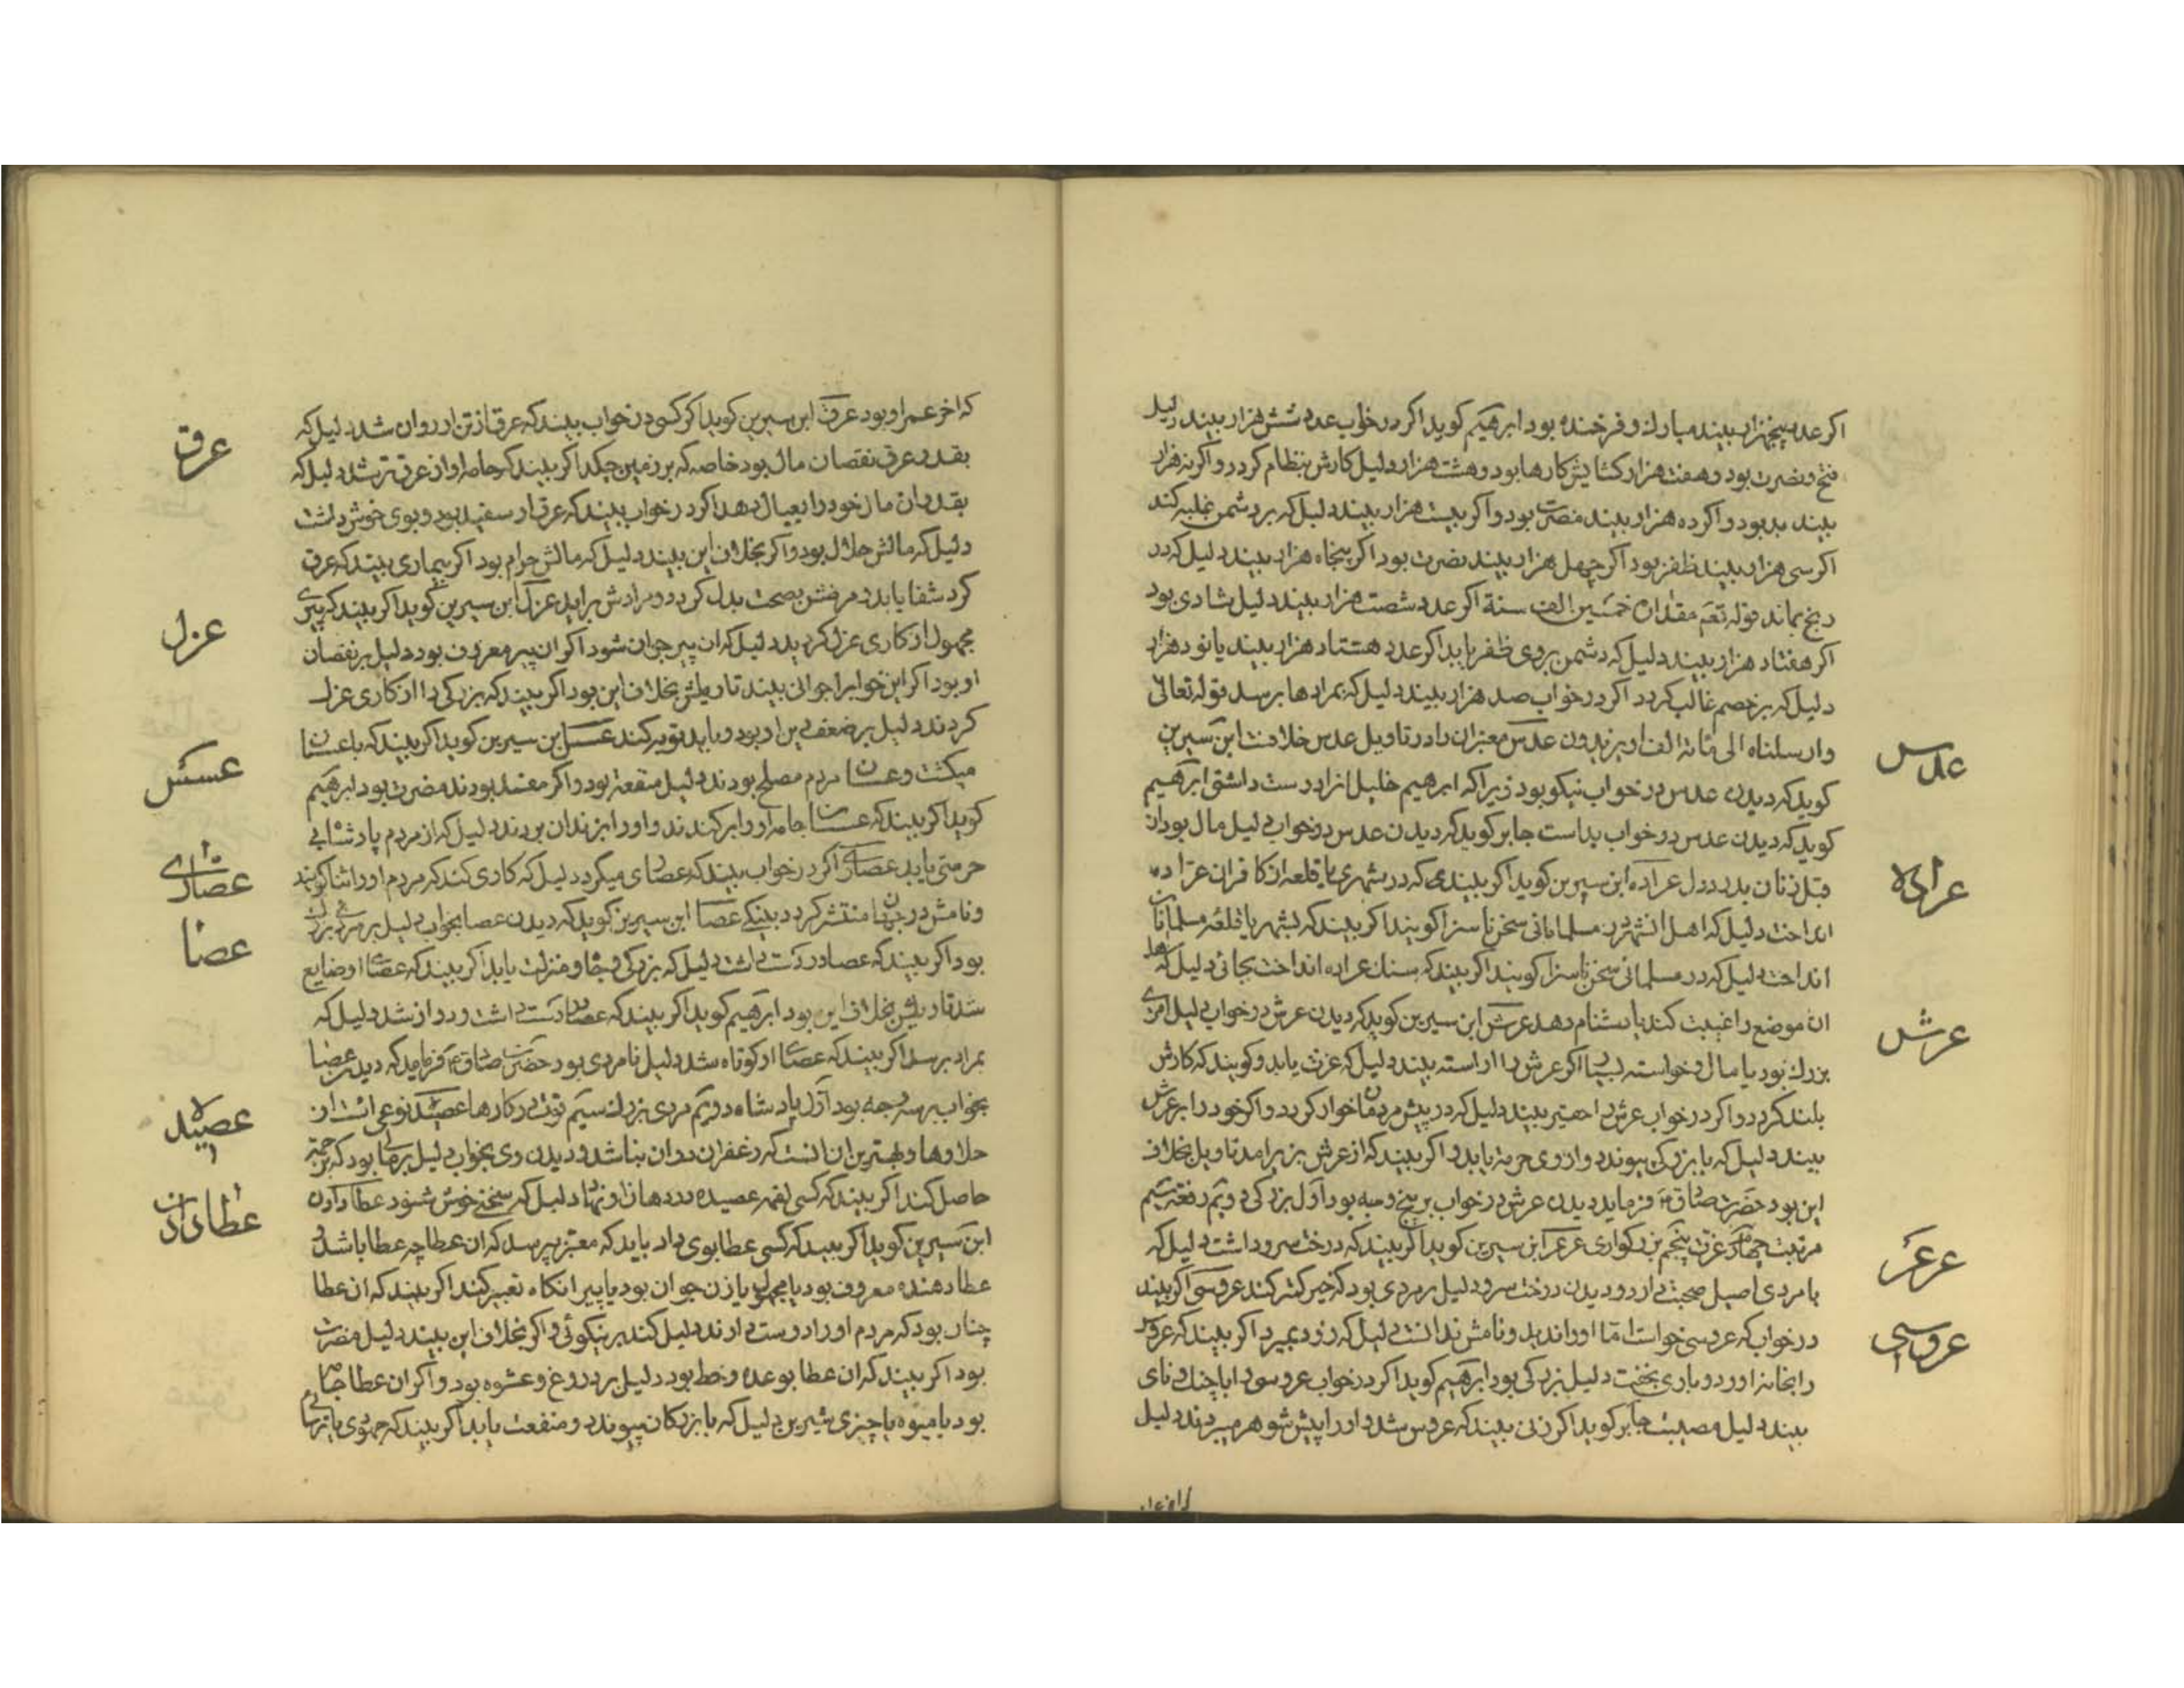 اگر عدد پنجهزار بیند مبارك و فرخنده بود ابرهیم کوید اکر در خواب عدد شش هزار بیند دلیل
فتح و نصرت بود و هفت هزار کشایش کارها بود و هشت هزار دلیل کارش بنظام کردد و اکر نه هزار
بیند بد بود و اکر ده هزار بیند نصرت بود و اکر بیست هزار بیند دلیل که بر دشمن غلبه کند
اکر سی هزار بیند ظفر بود اکر چهل هزار بیند نصرت بود اکر پنجاه هزار بیند دلیل که در
رنج بماند قوله تعم مقداره خمسین الف سنة اکر عدد شصت هزار بیند دلیل شادی بود
اکر هفتاد هزار بیند دلیل که دشمن بروی ظفر یابد اکر عدد هشتاد هزار بیند یا نود هزار
دلیل که بر خصم غالب کردد اکر در خواب صد هزار بیند دلیل که بمرادها برسد قوله تعالی
وارسلناه الی مائة الف او یزیدون عدس معبران را در تاویل عدس خلافست ابن سیرین
عدس
کوید که دیدن عدس در خواب نیکو بود زیرا که ابرهیم خلیل انرا دوست داشتی ابرهیم
کوید که دیدن عدس در خواب بد است جابر کوید که دیدن عدس در خواب دلیل مال بود از
قبل زنان عراده ابن سیرین کوید اکر بیند که در شهری یا قلعه از کافران عراده
عراده
انداخت دلیل که اهل انشهر در مسلمانی سخن ناسزا کویند اکر بیند که بشهر یا قلعه مسلمانان
انداخت دلیل که در مسلمانی سخن ناسزا کویند اکر بیند که سنك عراده انداخت بجائی دلیل که اهل
ان موضع را غیبت کند یا دشنام دهد عرش ابن سیرین کوید که دیدن عرش در خواب دلیل امری
عرش
بزرك بود یا مال و خواسته اکر عرش را اراسته بیند دلیل که عزت یابد و کویند که کارش
بلند کردد و اکر در خواب عرش را حقیر بیند دلیل که در پیش مردمان خوار کردد و اکر خود را بر عرش
بیند دلیل که با بزرکی بپیوندد و از وی حرمة یابد و اکر بیند که از عرش بزیر امد تاویل بخلاف
این بود حضرت صادق ع فرماید دیدن عرش در خواب بر پنج وجه بود اول بزرکی دویم رفعت سیم
مرتبت چهارم عزت پنجم بزرکواری عرعر ابن سیرین کوید اکر بیند که درخت سرو داشت دلیل که
عرعر
با مردی اصیل صحبت دارد و دیدن درخت سرو دلیل بر مردی بود که خیر کمتر کند عروسی اکر بیند
در خواب که عروسی خواست اما او را ندید و نامش ندانست دلیل که زود بمیرد اکر بیند که عروس
عروسی
را بخانه اورد و با وی بخفت دلیل بزرکی بود ابرهیم کوید اکر در خواب عروسی را با چنك و نای
بیند دلیل مصیبت جابر کوید اکر زنی بیند که عروس شد و او را پیش شوهر میبردند دلیل
که اخر عمر او بود عرق ابن سیرین کوید اکر کسی در خواب بیند که عرق از تن او روان شد دلیل که
عرق
بقدر عرق نقصان مال بود خاصه که بر زمین چکد اکر بیند که جامه او از عرق تر شد دلیل که
بقدر ان مال خود را بعیال دهد اکر در خواب بیند که عرق او سفید بود و بوی خوش داشت
دلیل که مالش حلال بود و اکر بخلاف این بیند دلیل که مالش حرام بود اکر بیماری بیند که عرق
کرد شفا یابد و مرضش بصحت بدل کردد و مرادش براید عزل ابن سیرین کوید اکر بیند که پیری
عزل
مجهول از کاری عزل کردید دلیل که ان پیر جوان شود اکر ان پیر معروف بود دلیل بر نقصان
او بود اکر این خواب را جوانی بیند تاویلش بخلاف این بود اکر بیند که بزرکی را از کاری عزل
کردند دلیل بر ضعف دین او بود و باید توبه کند عسس ابن سیرین کوید اکر بیند که با عسسان
عسس
میکشت و عسسان مردم مصلح بودند دلیل منفعة بود و اکر مفسد بودند مضرت بود ابرهیم
کوید اکر بیند که عسسان جامه او را برکندند و او را بزندان بردند دلیل که از مردم پادشاه بی
حرمتی یابد عصاری اکر در خواب بیند که عصاری میکرد دلیل که کاری کند که مردم او را ثنا کویند
عصاری
و نامش در جهان منتشر کردد بنیکی عصا ابن سیرین کوید که دیدن عصا بخواب دلیل بر مردی بزرك
عصا
بود اکر بیند که عصا در دست داشت دلیل که بزرکی و جاه و منزلت یابد اکر بیند که عصای او ضایع
شد تاویلش بخلاف این بود ابرهیم کوید اکر بیند که عصا در دست داشت و دراز شد دلیل که
بمراد برسد اکر بیند که عصای او کوتاه شد دلیل نامردی بود حضرت صادق ع فرماید که دیدن عصا
بخواب بر سه وجه بود اول پادشاه دویم مردی بزرك سیم قوت در کارها عصیده نوعی است از
عصیده
حلاوها و بهترین ان انست که زعفران دران نباشد و دیدن وی بخواب دلیل بر مالی بود که برحمة
حاصل کند اکر بیند که کسی لقمه عصیده در دهان او نهاد دلیل که سخنی خوش شنود عطا دادن
عطا دادن
ابن سیرین کوید اکر بیند که کسی عطا بوی داد باید که معبر بپرسد که ان عطا چه عطا باشد و
عطا دهنده معروف بود یا مجهول یا زن جوان بود یا پیر انکاه تعبیر کند اکر بیند که ان عطا
چنان بود که مردم او را دوست دارند دلیل کند بر نیکوئی و اکر بخلاف این بیند دلیل مضرت
بود اکر بیند که ان عطا بوعده و خط بود دلیل بر دروغ و عشوه بود و اکر ان عطا جامه
بود یا میوه یا چیزی شیرین دلیل که با بزرکان پیوندد و منفعت یابد اکر بیند که جهودی یا ترسائی